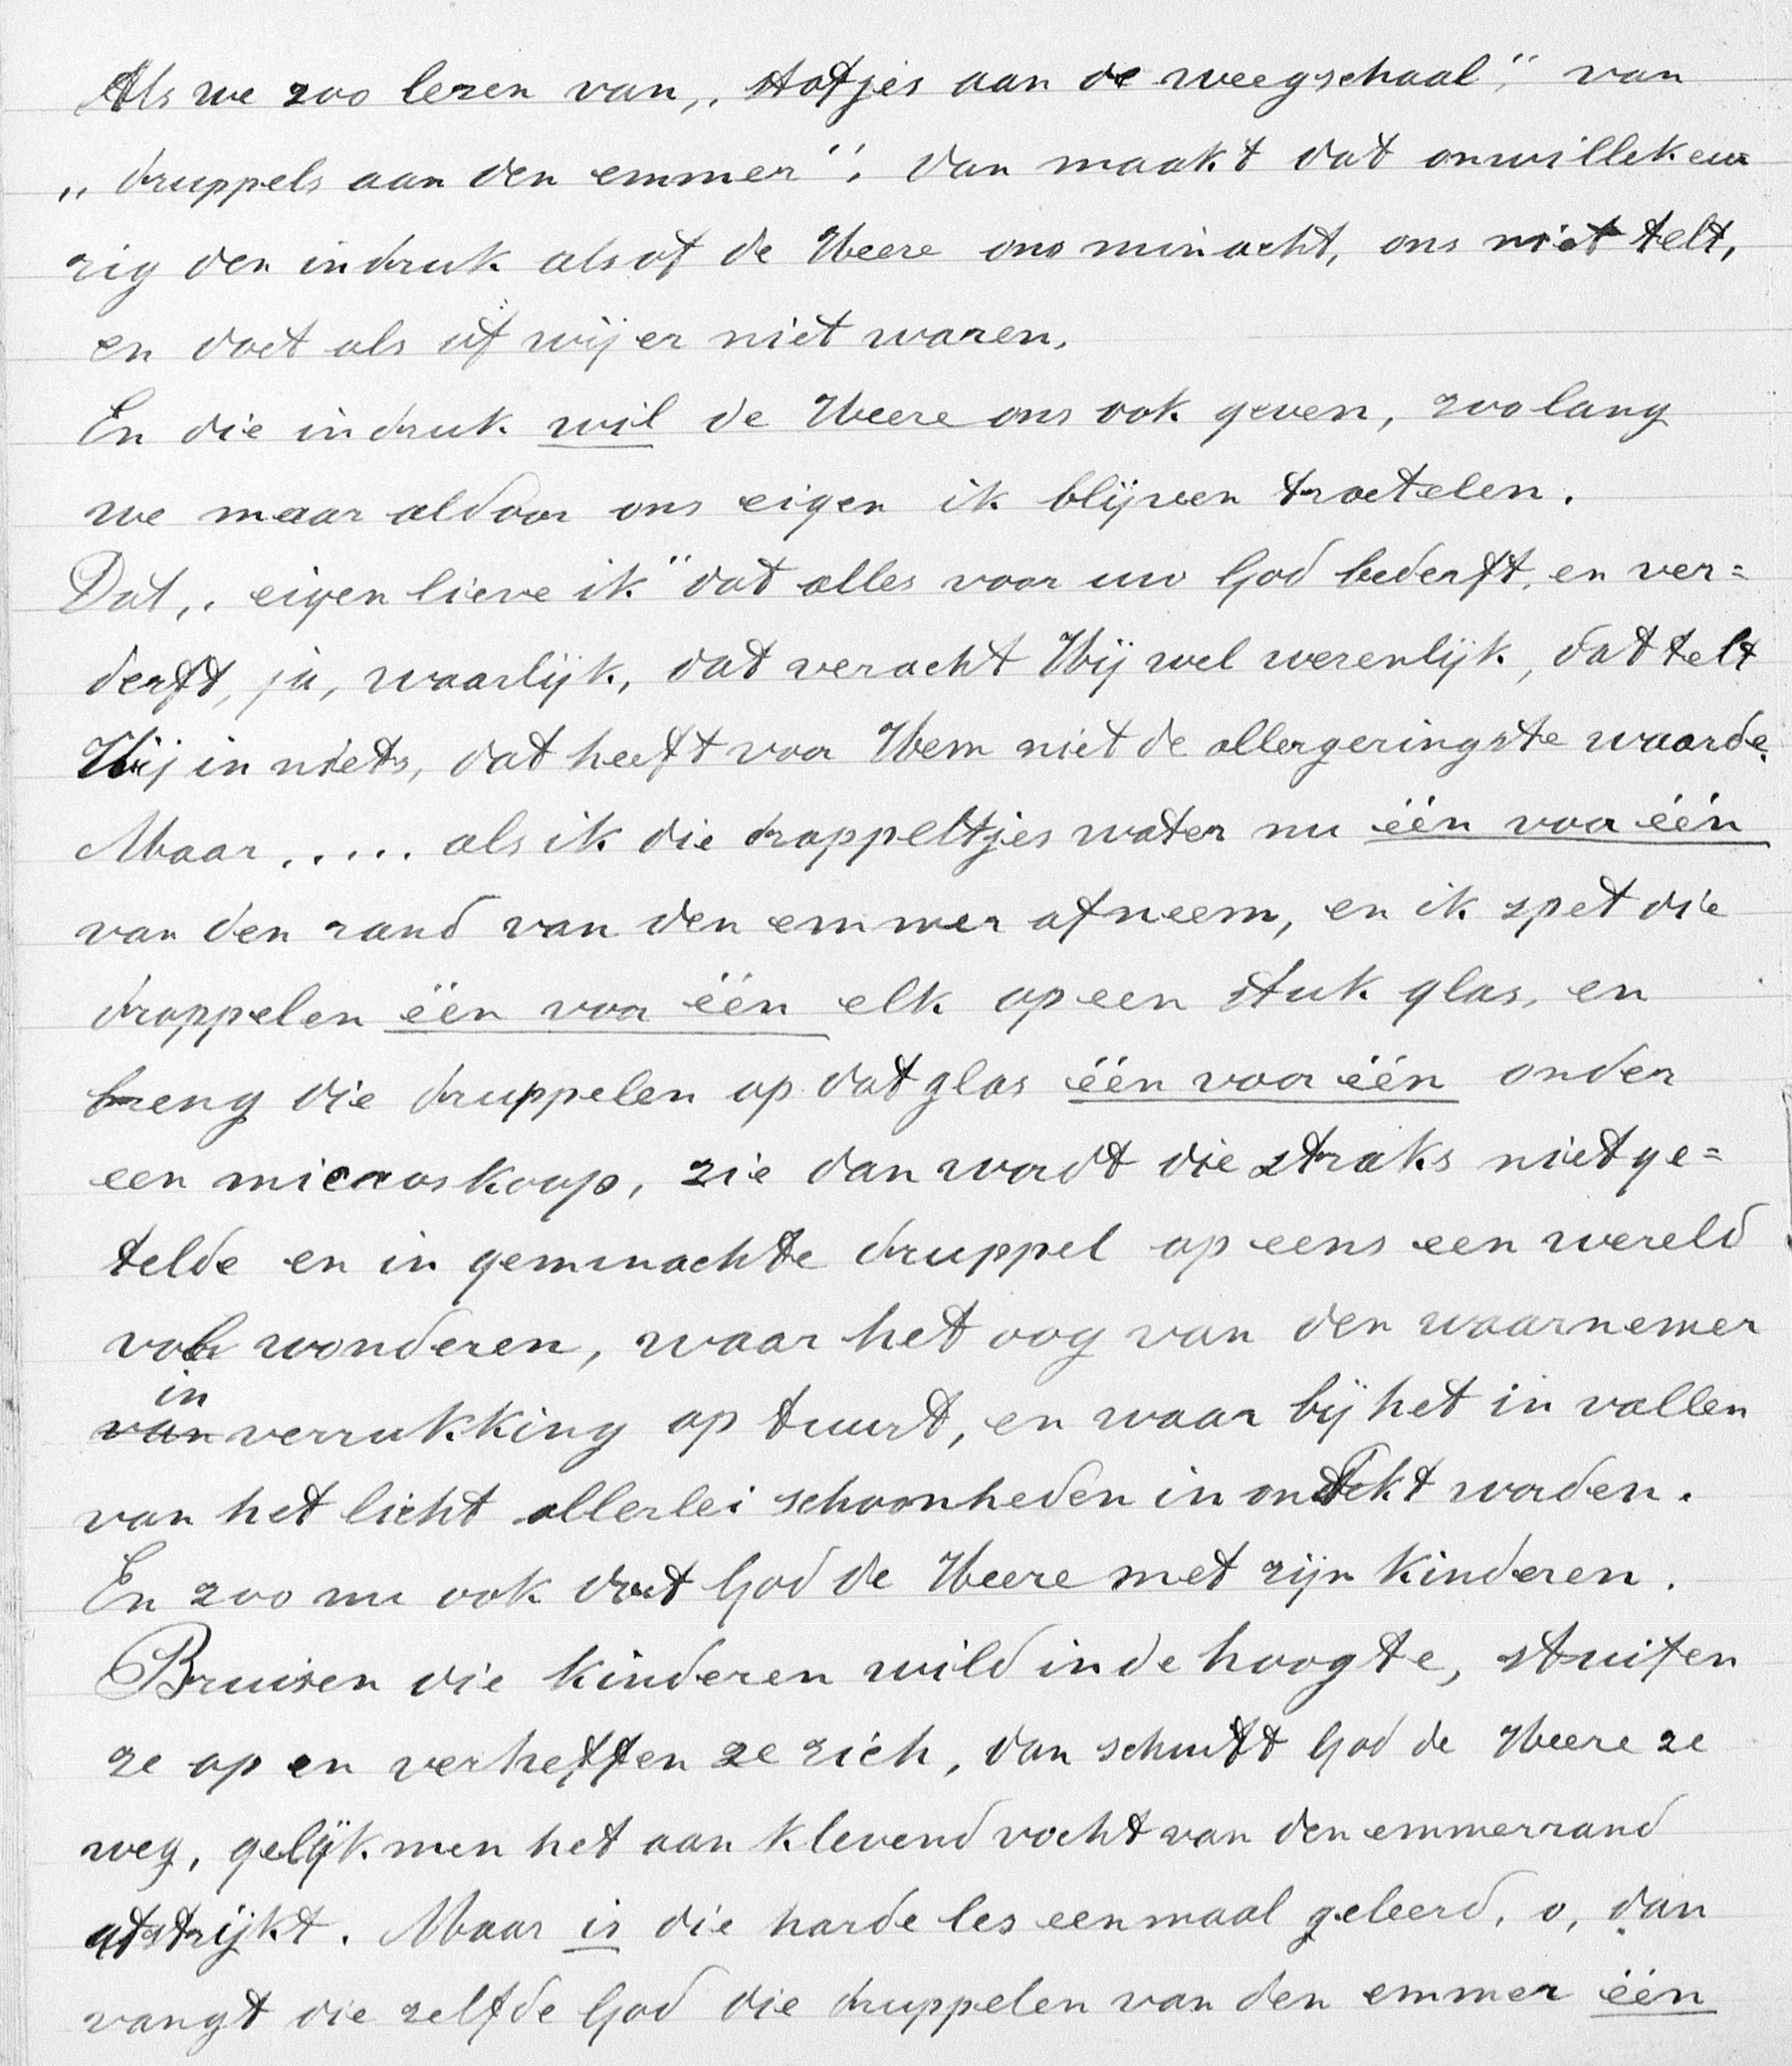 Als we zoo lezen van „stofjes aan de weegschaal", van
„druppels aan den emmer"; dan maakt dat onwillekeu
rig den indruk alsof de Heere ons minacht, ons niet telt,
en doet als of wij er niet waren.
En die indruk wil de Heere ons ook geven, zoolang
we maar aldoor ons eigen ik blijven troetelen.
Dat „eigen lieve ik" dat alles voor uw God bederft, en ver=
derft, ja, waarlijk, dat veracht Hij wel wezenlijk, dat telt
Hij in niets, dat heeft voor Hem niet de allergeringste waarde.
Maar ..... als ik die droppeltjes water nu één voor één
van den rand van den emmer afneem, en ik spet die
droppelen één voor één elk op een stuk glas, en
breng die druppelen op dat glas één voor één onder
een microoskoop, zie dan wordt die straks niet ge=
telde en in geminachte druppel op eens een wereld
vol wonderen, waar het oog van den waarnemer
in
van verrukking op tuurt, en waar bij het in vallen
van het licht allerlei schoonheden in ontdekt worden.
En zoo nu ook doet God de Heere met zijn kinderen.
Bruisen die kinderen wild in de hoogte, stuifen
ze op en verheffen ze zich, dan schudt God de Heere ze
weg, gelijk men het aan klevend vocht van den emmerrand
afstrijkt. Maar is die harde les eenmaal geleerd, o, dan
vangt die zelfde God die druppelen van den emmer één